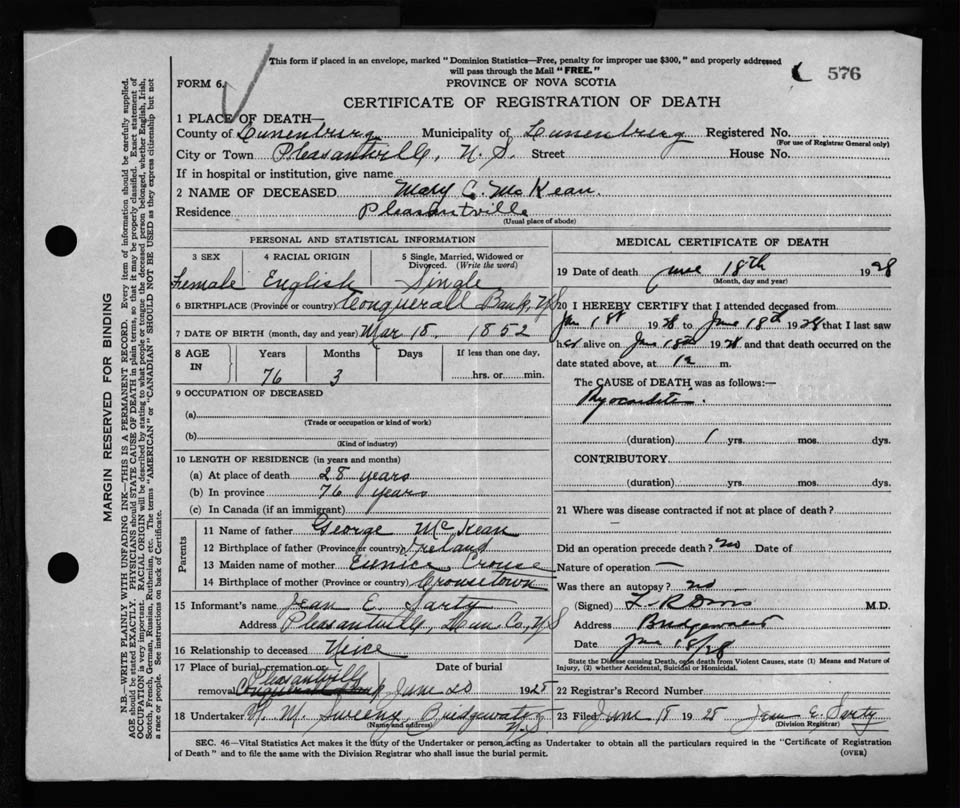 This form if placed in an envelope, marked "Dominion Statistics—Free, penalty for improper use $300," and properly addressed
will pass through the Mail "FREE."
576
FORM 6.
PROVINCE OF NOVA SCOTIA
CERTIFICATE OF REGISTRATION OF DEATH
1 PLACE OF DEATH—
County of Lunenburg Municipality of Lunenburg Registered No.
(For use of Registrar General only)
City or Town Pleasantville, N.S. Street House No.
If in hospital or institution, give name
2 NAME OF DECEASED Mary C. McKean.
Residence Pleasantville
(Usual place of abode)
PERSONAL AND STATISTICAL INFORMATION
3 SEX 4 RACIAL ORIGIN 5 Single, Married, Widowed or
Divorced. (Write the word)
Female English Single
6 BIRTHPLACE (Province or country) Conquerall Bank, N.S
7 DATE OF BIRTH (month, day and year) Mar 18. 1852
8 AGE IN Years Months Days If less than one day,
76 3 hrs. or min.
9 OCCUPATION OF DECEASED
(a)
(Trade or occupation or kind of work)
(b)
(Kind of industry)
10 LENGTH OF RESIDENCE (in years and months)
(a) At place of death 28 years
(b) In province 76 years
(c) In Canada (if an immigrant)
Parents
11 Name of father George McKean
12 Birthplace of father (Province or country) Ireland
13 Maiden name of mother Eunice Crouse
14 Birthplace of mother (Province or country) Crousetown
15 Informant's name Jean E. Sarty
Address Pleasantville, Lun. Co., N.S
16 Relationship to deceased Neice
17 Place of burial, cremation or Date of burial
Pleasantville
removal June 20 1928
18 Undertaker Sweeny, Bridgewater,
(Name and address)
N.S.
MEDICAL CERTIFICATE OF DEATH
19 Date of death June 18th 1928
(Month, day and year)
20 I HEREBY CERTIFY that I attended deceased from
1928 to June 18th 1928 that I last saw
her alive on June 18th 1928 and that death occurred on the
date stated above, at 12 m.
The CAUSE of DEATH was as follows:—
Myocarditis.
(duration) 1 yrs. mos. dys.
CONTRIBUTORY.
(duration) yrs. mos. dys.
21 Where was disease contracted if not at place of death?
—
Did an operation precede death? no Date of
Nature of operation —
Was there an autopsy? no
(Signed) M.D.
Address Bridgewater
Date June 18/28
State the Disease causing Death, or on death from Violent Causes, state (1) Means and Nature of
Injury, (2) whether Accidental, Suicidal or Homicidal.
22 Registrar's Record Number
23 Filed June 18 1928 Jean E. Sarty
(Division Registrar)
SEC. 46—Vital Statistics Act makes it the duty of the Undertaker or person acting as Undertaker to obtain all the particulars required in the "Certificate of Registration
of Death" and to file the same with the Division Registrar who shall issue the burial permit.
(OVER)
MARGIN RESERVED FOR BINDING
N.B.—WRITE PLAINLY WITH UNFADING INK—THIS IS A PERMANENT RECORD. Every item of information should be carefully supplied.
AGE should be stated EXACTLY. PHYSICIANS should STATE CAUSE OF DEATH in plain terms, so that it may be properly classified. Exact statement of
OCCUPATION is very important. RACIAL ORIGIN will be described by stating to what people or tongue the deceased person belonged, whether English, Irish,
Scotch, French, German, Russian, Ruthenian, etc. The terms "AMERICAN" or "CANADIAN" SHOULD NOT BE USED as they express citizenship but not
a race or people. See instructions on back of Certificate.